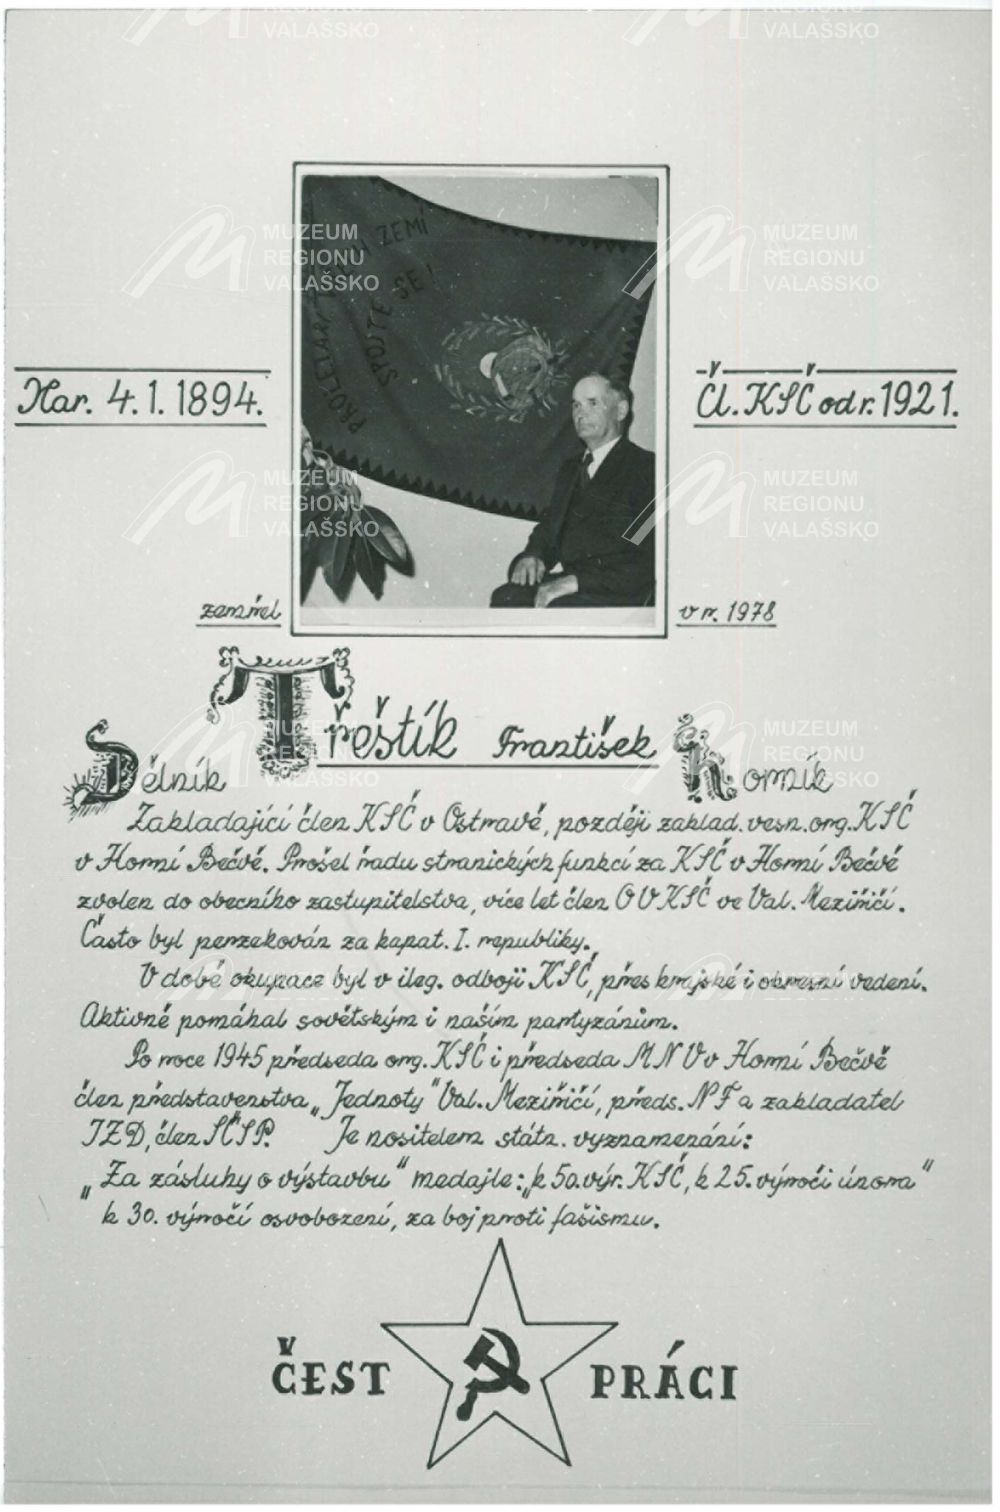 MUZEUM REGIONU VALAŠSKO
PROLETÁŘI ZEMÍ
SPOJTE SE!
Nar. 4. 1. 1894.
Čl. KSČ od r. 1921.
zemřel
v r. 1978
Třeštík František
Dělník
Horník
Zakladající člen KSČ v Ostravě, později zaklad. vesn. org. KSČ
v Horní Bečvě. Prošel řadu stranických funkcí za KSČ v Horní Bečvě
zvolen do obecního zastupitelstva, více let člen OVKSČ ve Val. Meziříčí.
Často byl perzekován za kapat. I. republiky.
V době okupace byl v ileg. odboji KSČ, přes krajské i okresní vedení.
Aktivně pomáhal sovětským i naším partyzánům.
Po roce 1945 předseda org. KSČ i předseda MNV v Horní Bečvě
člen představenstva „Jednoty" Val. Meziříčí, předs. NF a zakladatel
JZD, člen SČSP. Je nositelem státn. vyznamenání:
„Za zásluhy o výstavbu" medajle: „k 50. výr. KSČ, k 25. výročí února"
k 30. výročí osvobození, za boj proti fašismu.
ČEST PRÁCI